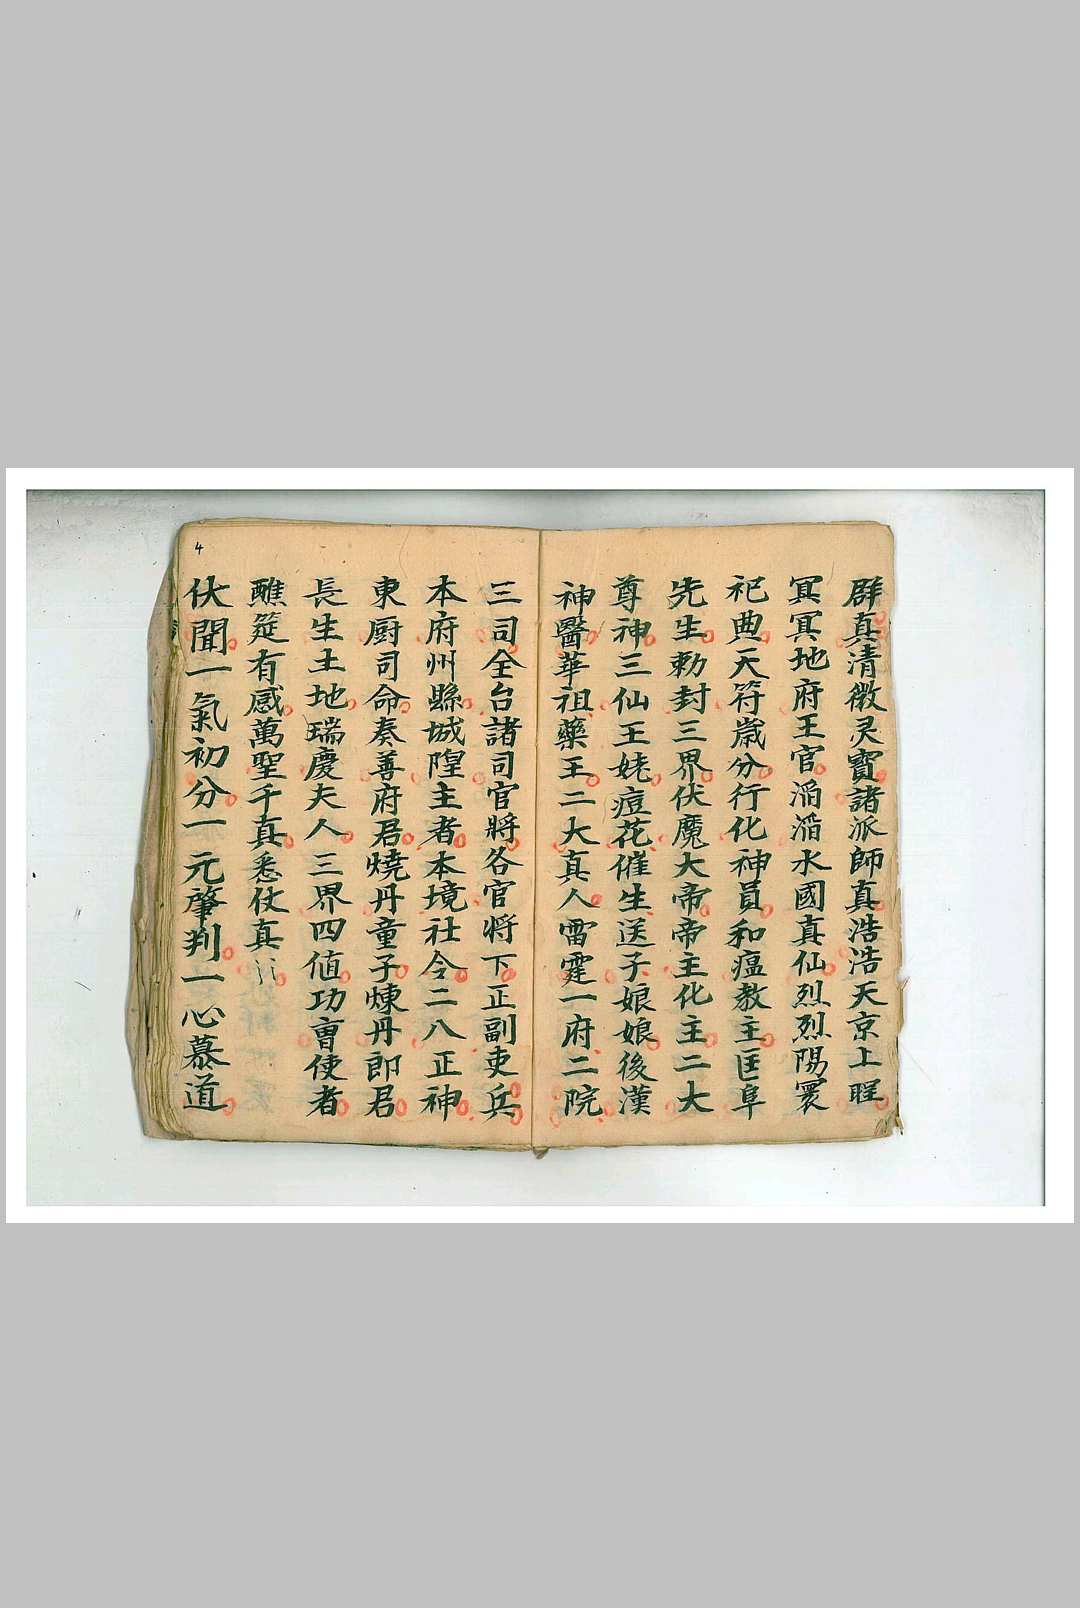 群真清微灵寶諸派師真浩浩天京上聖
冥冥地府王官滔滔水國真仙烈烈陽寰
祀典天符歲分行化神員和瘟教主匡阜
先生勅封三界伏魔大帝帝主化主二大
尊神三仙王姥痘花催生送子娘娘後漢
神醫華祖藥王二大真人雷霆一府二院
三司全台諸司官將各官将下正副吏兵
本府州縣城隍主者本境社令二八正神
東厨司命奏善府君燒丹童子煉丹郎君
長生土地瑞慶夫人三界四值功曹使者
醮筵有感萬聖千真悉仗真
伏聞一氣初分一元肇判一心慕道
4